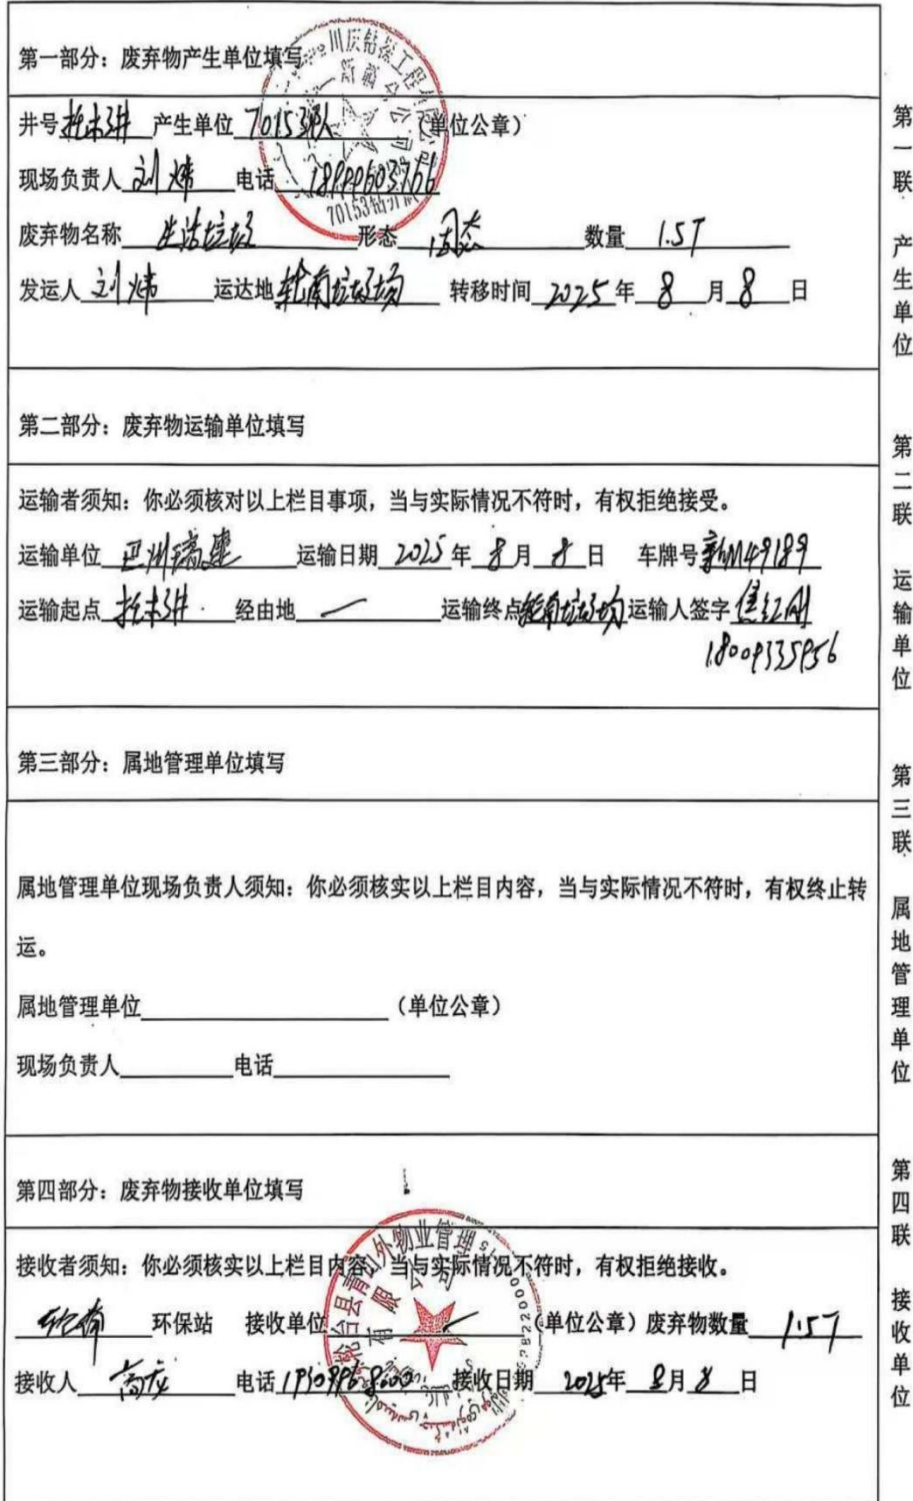 第一部分：废弃物产生单位填写
井号 产生单位 70153队 （单位公章）
现场负责人 刘炜 电话
废弃物名称 生活垃圾 形态 固态 数量 1.5T
发运人 刘炜 运达地 轮南垃圾场 转移时间 2025 年 8 月 8 日
第二部分：废弃物运输单位填写
运输者须知：你必须核对以上栏目事项，当与实际情况不符时，有权拒绝接受。
运输单位 巴州瑞 运输日期 2025 年 8 月 8 日 车牌号 新M49189
运输起点 经由地 — 运输终点 轮南垃圾场 运输人签字
第三部分：属地管理单位填写
属地管理单位现场负责人须知：你必须核实以上栏目内容，当与实际情况不符时，有权终止转
运。
属地管理单位 （单位公章）
现场负责人 电话
第四部分：废弃物接收单位填写
接收者须知：你必须核实以上栏目内容，当与实际情况不符时，有权拒绝接收。
轮南 环保站 接收单位 （单位公章）废弃物数量 1.5T
接收人 高龙 电话 接收日期 2025 年 8 月 8 日
第一联 产生单位
第二联 运输单位
第三联 属地管理单位
第四联 接收单位
70153钻井队
物业管理
有限公司